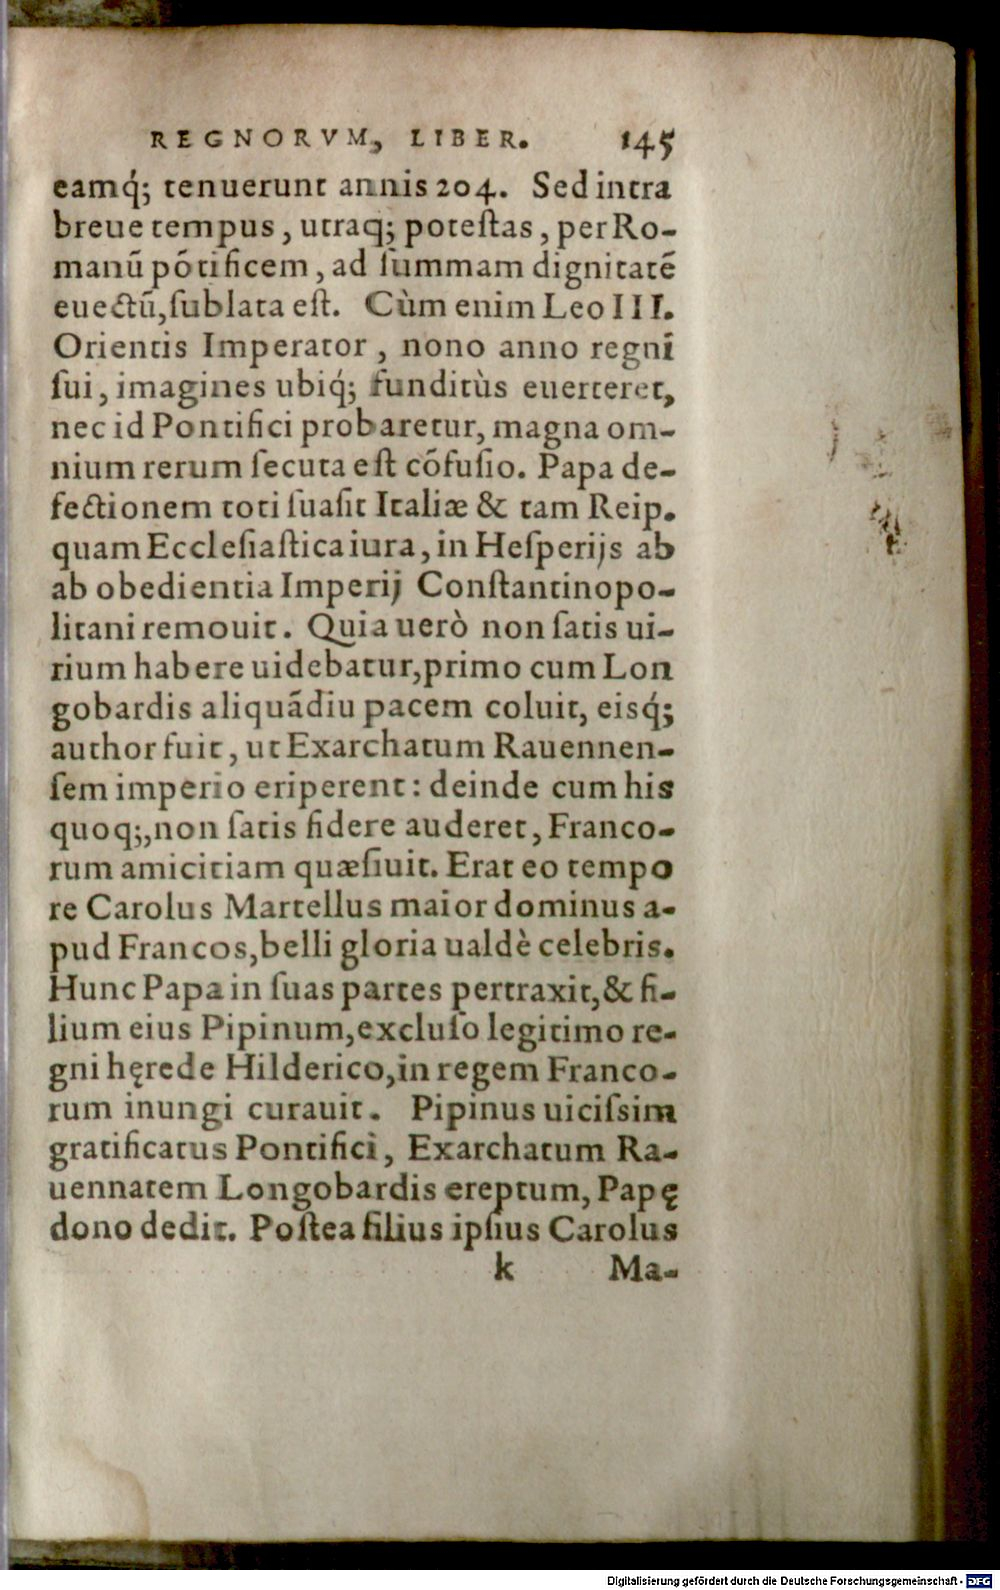 REGNORVM, LIBER. 145
eamq́; tenuerunt annis 204. Sed intra
breue tempus, utraq; poteſtas, per Ro-
manũ põtificem, ad ſummam dignitatẽ
euectũ, ſublata eſt. Cùm enim Leo III.
Orientis Imperator, nono anno regni
ſui, imagines ubiq́; funditùs euerteret,
nec id Pontifici probaretur, magna om-
nium rerum ſecuta eſt cõfuſio. Papa de-
fectionem toti ſuaſit Italiæ & tam Reip.
quam Eccleſiaſtica iura, in Heſperijs ab
ab obedientia Imperij Conſtantinopo-
litani remouit. Quia uerò non ſatis ui-
rium habere uidebatur, primo cum Lon
gobardis aliquãdiu pacem coluit, eisq́;
author fuit, ut Exarchatum Rauennen-
ſem imperio eriperent: deinde cum his
quoq;, non ſatis fidere auderet, Franco-
rum amicitiam quæſiuit. Erat eo tempo
re Carolus Martellus maior dominus a-
pud Francos, belli gloria ualdè celebris.
Hunc Papa in ſuas partes pertraxit, & fi-
lium eius Pipinum, excluſo legitimo re-
gni hęrede Hilderico, in regem Franco-
rum inungi curauit. Pipinus uiciſsim
gratificatus Pontifici, Exarchatum Ra-
uennatem Longobardis ereptum, Papę
dono dedit. Poſtea filius ipſius Carolus
k Ma-
Digitalisierung gefördert durch die Deutsche Forschungsgemeinschaft - DFG